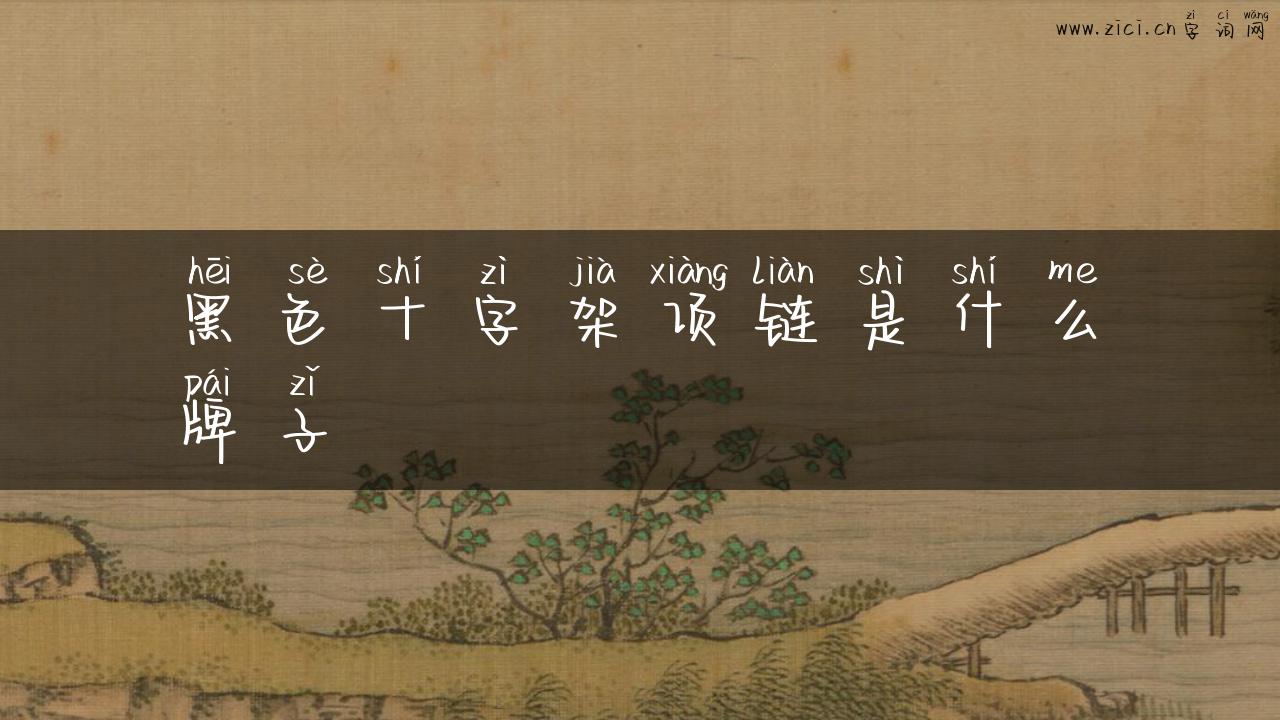 zì cí wǎng
www.zici.cn 字 词 网
hēi sè shí zì jià xiàng liàn shì shí me
黑 色 十 字 架 项 链 是 什 么
pái zǐ
牌 子